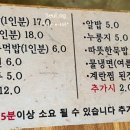 (1인분) 17.0
1인분) 18.0
먹밥(1인분) 6.0
6.0
12.0
· 알밥 5.0
· 누룽지 5.0
· 따뜻한묵밥
· 물냉면(여름
· 계란찜 된장
추가시 2.0
5분이상 소요 될 수 있습니다 추가